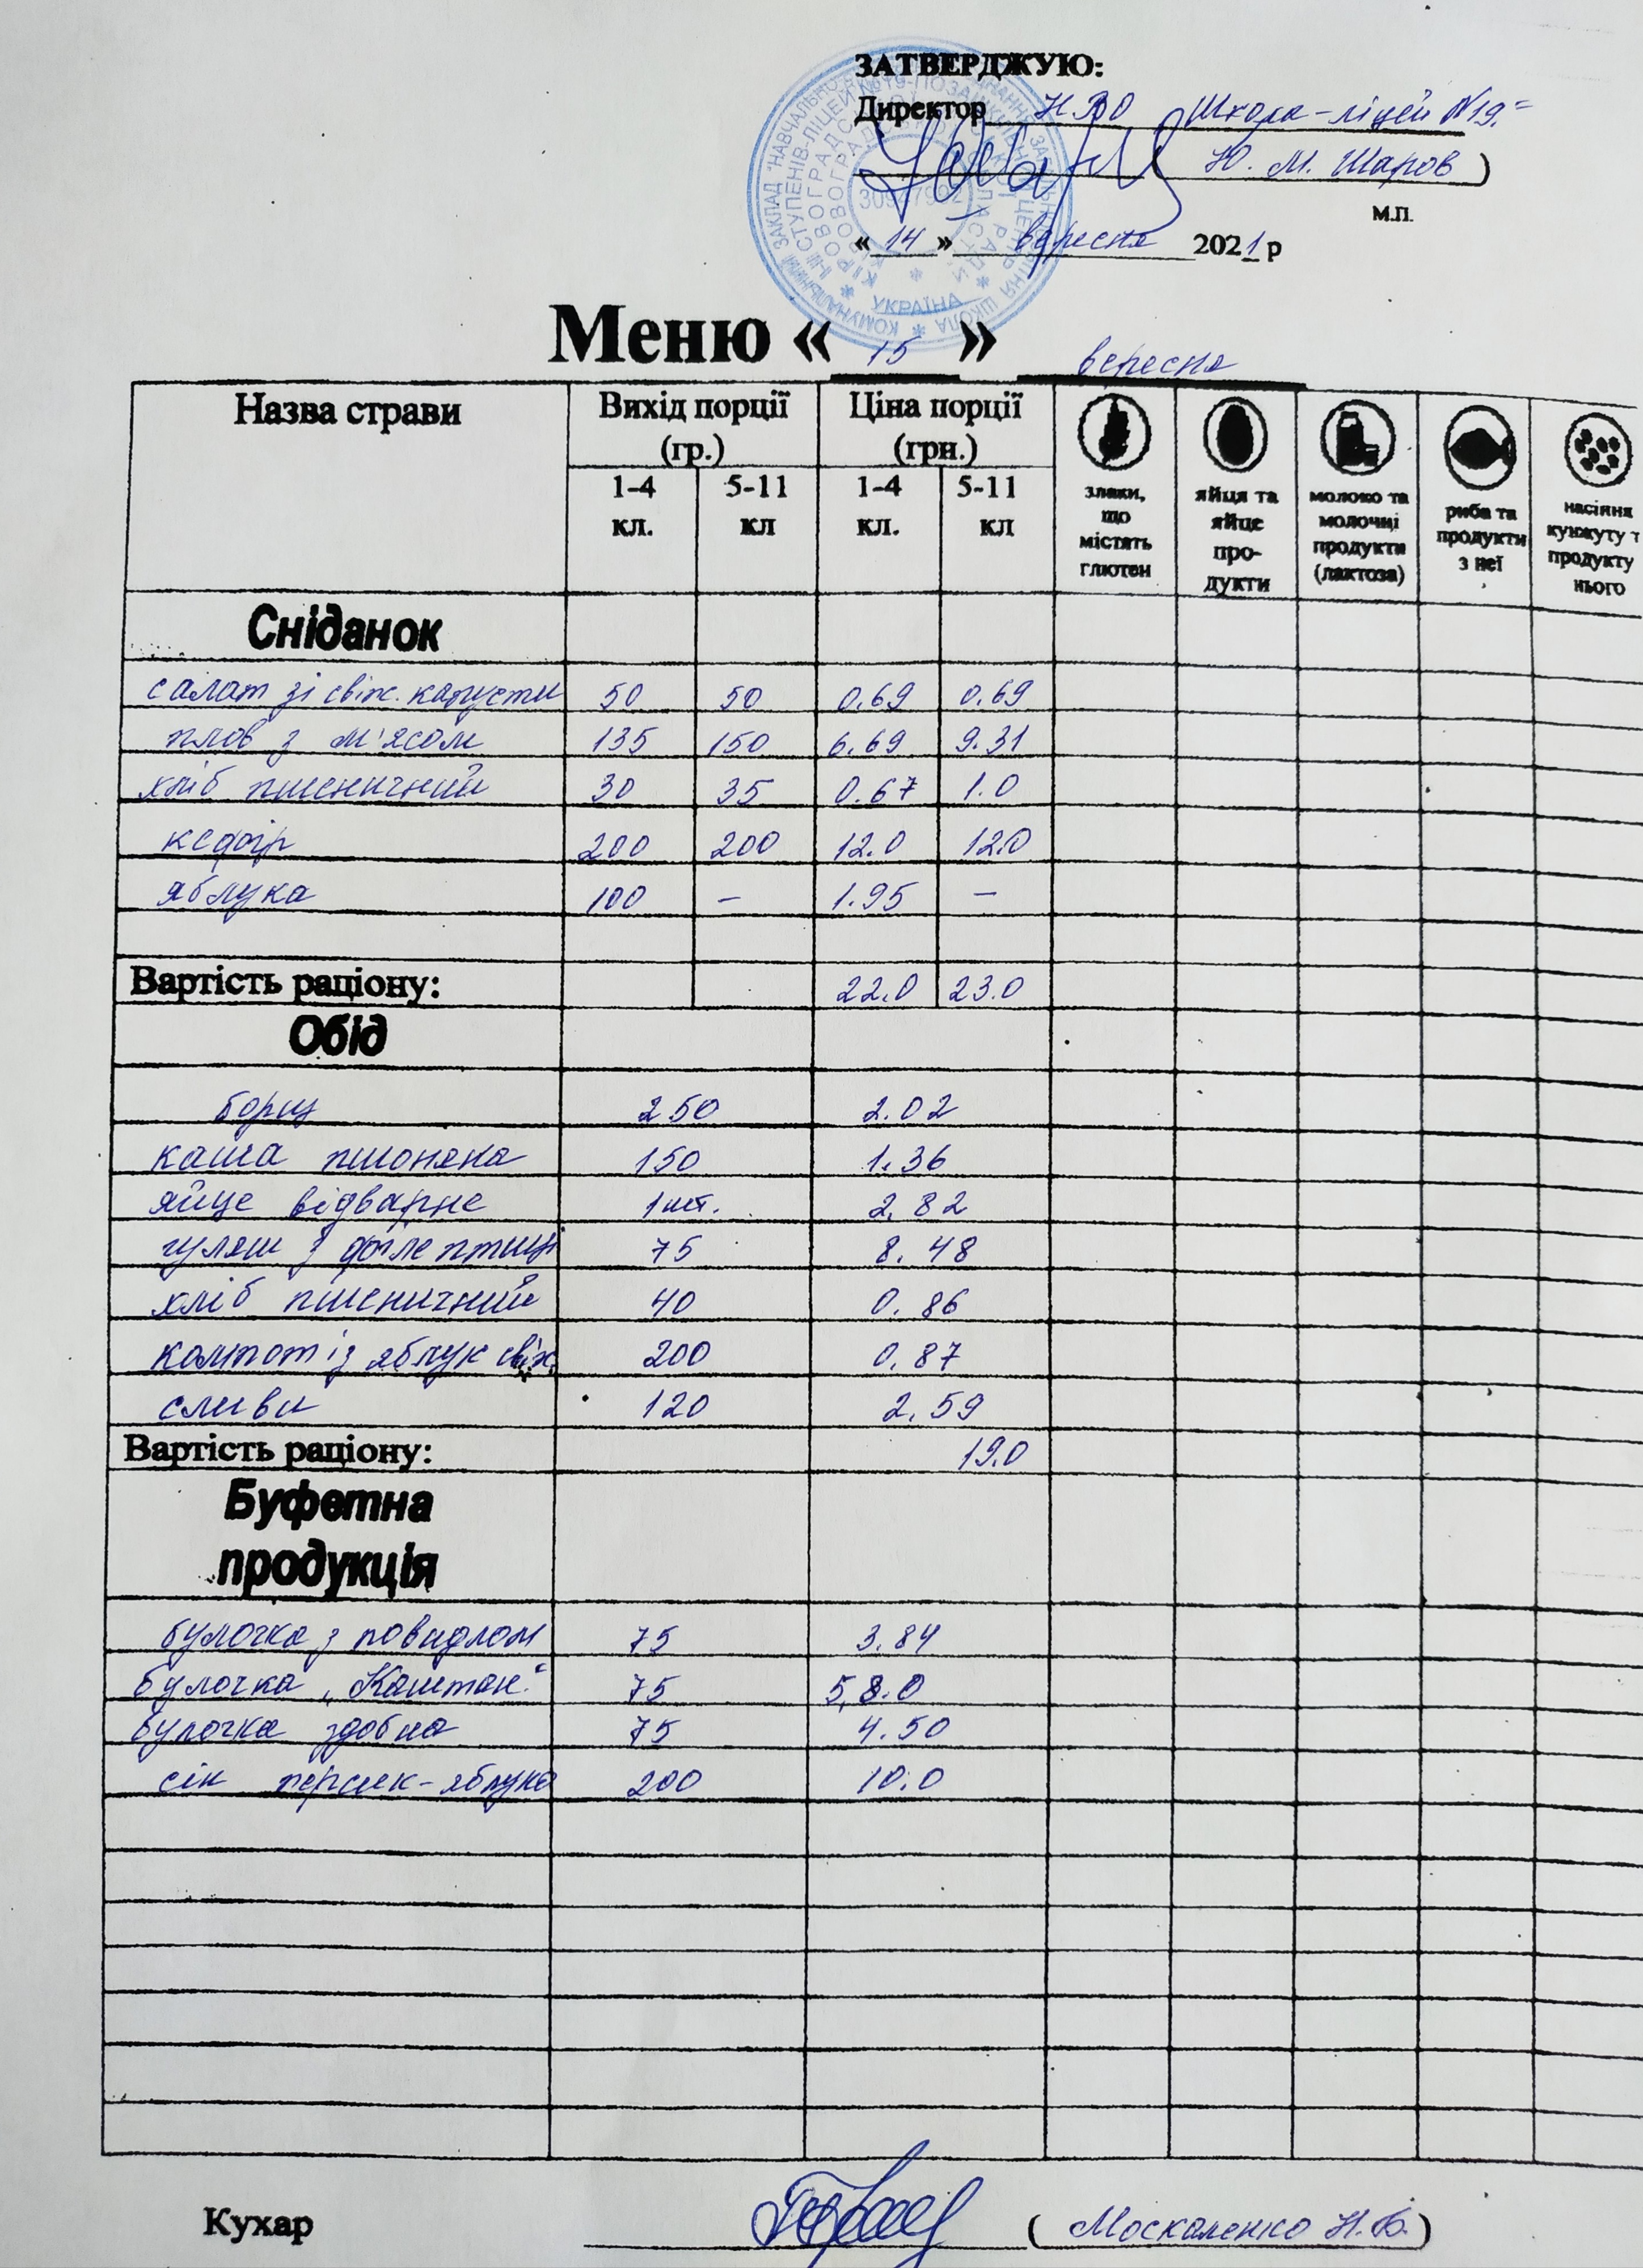 ЗАТВЕРДЖУЮ:
Директор НВО Школа-ліцей №19"
( Ю. М. Шаров )
М.П.
« 14 » вересня 2021 р
УКРАЇНА
Меню « 15 » вересня
Назва страви Вихід порції (гр.) Ціна порції (грн.)
1-4 кл. 5-11 кл 1-4 кл. 5-11 кл
злаки, що містять глютен
яйця та яйце про- дукти
молоко та молочні продукти (лактоза)
риба та продукти з неї
насіння кунжуту т продукту нього
Сніданок
салат зі свіж. капусти 50 50 0.69 0.69
плов з м'ясом 135 150 6.69 9.31
хліб пшеничний 30 35 0.67 1.0
кефір 200 200 12.0 12.0
яблука 100 – 1.95 –
Вартість раціону: 22.0 23.0
Обід
борщ 250 2.02
каша пшоняна 150 1.36
яйце відварне 1шт. 2.82
гуляш з філе птиці 75 8.48
хліб пшеничний 40 0.86
компот із яблук свіж. 200 0.87
сливи 120 2.59
Вартість раціону: 19.0
Буфетна
продукція
булочка з повидлом 75 3.84
булочка „Каштан" 75 5,8.0
булочка здобна 75 4.50
сік персик-яблуко 200 10.0
Кухар ( Москаленко Н.Б. )